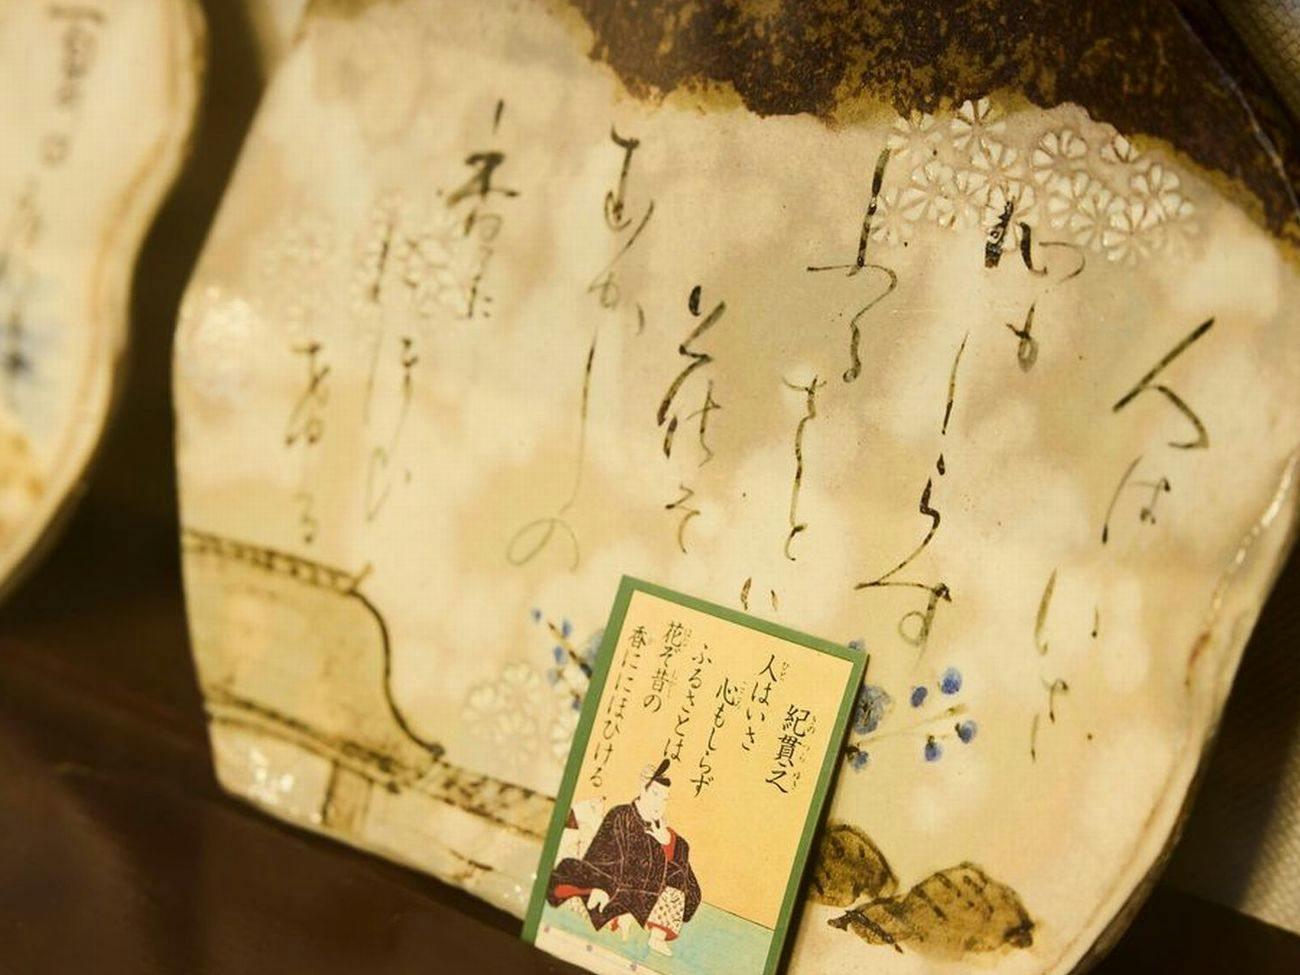 人は
いさ
心も
しらす
ふるさと
は
花そ
むかしの
香に
にほひ
ける
紀貫之
人はいさ
心もしらず
ふるさとは
花ぞ昔の
香ににほひける